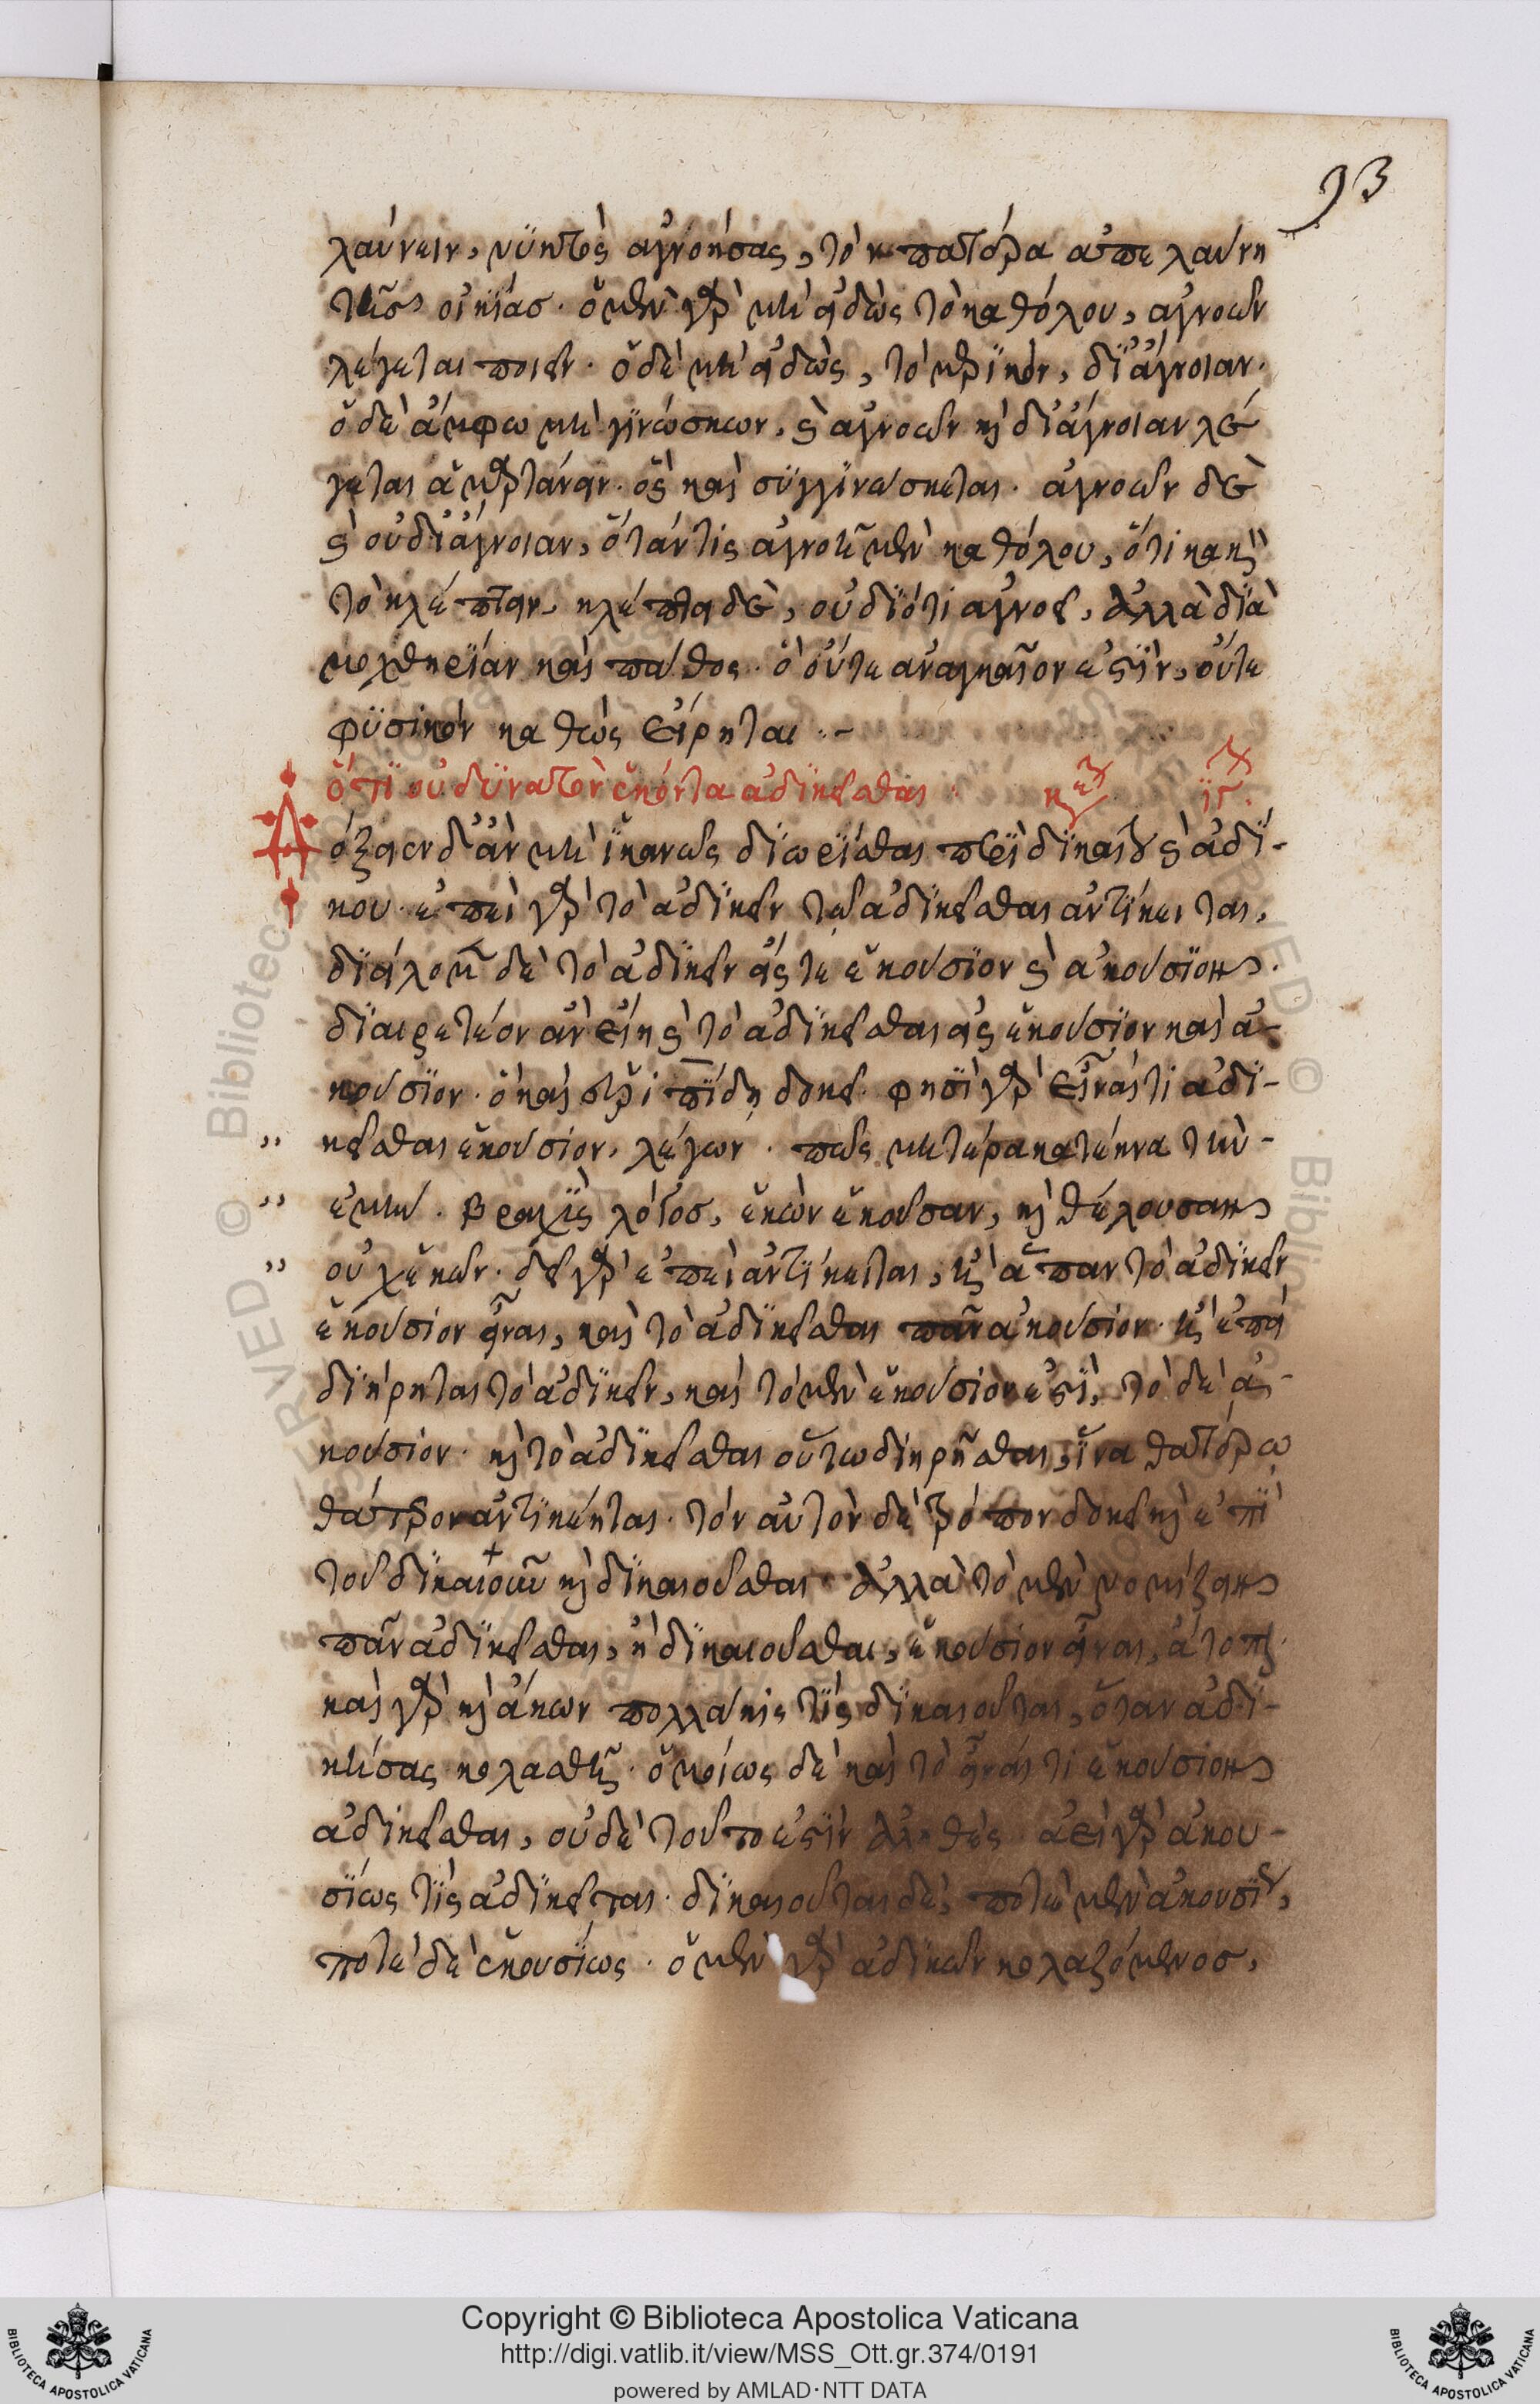 93
λαύνειν, νυκτὸς ἀγνοήσας, τὸν πατέρα ἀπελαύνη
τῆς οἰκίας. ὁ μὲν γὰρ μὴ εἰδὼς τὸ καθόλου, ἀγνοῶν
λέγεται ποιεῖν. ὁ δὲ μὴ εἰδὼς, τὸ μερικὸν, δι' ἄγνοιαν.
ὁ δὲ ἄμφω μὴ γινώσκων, καὶ ἀγνοῶν καὶ δι' ἄγνοιαν λέ
γεται ἁμαρτάνειν. ὃς καὶ συγγινώσκεται. ἀγνοῶν δὲ
καὶ οὐ δι' ἄγνοιαν, ὅταν τὶς ἀγνοῆ μὲν καθόλου, ὅτι κακὸν
τὸ κλέπτειν, κλέπτει δὲ, οὐ διότι ἀγνοεῖ, ἀλλὰ διὰ
μοχθηρίαν καὶ πάθος. ὃ οὔτε ἀναγκαῖον ἐστὶν, οὔτε
φυσικὸν καθὼς εἴρηται.
ὅτι οὐ δυνατὸν ἑκόντα ἀδικεῖσθαι.
Δόξειεν δ' ἂν μὴ ἱκανῶς διωρίσθαι περὶ δικαίου καὶ ἀδί-
κου. ἐπεὶ γὰρ τὸ ἀδικεῖν τῷ ἀδικεῖσθαι ἀντίκειται,
διείλομεν δὲ τὸ ἀδικεῖν εἴς τε ἑκούσιον καὶ ἀκούσιον.
διαιρετέον ἂν εἴη καὶ τὸ ἀδικεῖσθαι εἰς ἑκούσιον καὶ ἀ-
κούσιον. ὃ καὶ εὐριπίδη δοκεῖ. φησὶ γὰρ εἶναί τι ἀδι-
,, κεῖσθαι ἑκούσιον, λέγων. πῶς μητέρα κατέκτα τὴν-
,, ἐμήν. βραχὺς λόγος, ἑκὼν ἑκοῦσαν, καὶ θέλουσαν
,, οὐχ ἑκών. δεῖ γὰρ ἐπεὶ ἀντίκειται, εἰ ἅπαν τὸ ἀδικεῖν
ἑκούσιον εἶναι, καὶ τὸ ἀδικεῖσθαι πᾶν ἀκούσιον. εἰ ἐπεὶ
διῄρηται τὸ ἀδικεῖν, καὶ τὸ μὲν ἑκούσιον ἐστὶ, τὸ δὲ ἀ-
κούσιον. καὶ τὸ ἀδικεῖσθαι οὕτω διῃρῆσθαι, ἵνα θατέρω
θάτερον ἀντικέηται. τὸν αὐτὸν δὲ τρόπον δοκεῖ καὶ ἐπὶ
τοῦ δικαιοῦν καὶ δικαιοῦσθαι. ἀλλὰ τὸ μὲν νομίζειν
πᾶν ἀδικεῖσθαι, ἢ δικαιοῦσθαι, ἑκούσιον εἶναι, ἄτοπον.
καὶ γὰρ καὶ ἄκων πολλάκις τὶς δικαιοῦται, ὅταν ἀδι-
κήσας κολασθῆ. ὁμοίως δὲ καὶ τὸ εἶναί τι ἑκούσιον
ἀδικεῖσθαι, οὐδὲ τοῦτο ἐστὶν ἀληθές. ἀεὶ γὰρ ἀκου-
σίως τὶς ἀδικεῖται. δικαιοῦται δὲ, ποτὲ μὲν ἀκουσίως,
ποτὲ δὲ ἑκουσίως. ὁ μὲν γὰρ ἀδικῶν κολαζόμενος,
Copyright © Biblioteca Apostolica Vaticana
http://digi.vatlib.it/view/MSS_Ott.gr.374/0191
powered by AMLAD·NTT DATA
BIBLIOTECA APOSTOLICA VATICANA
BIBLIOTECA APOSTOLICA VATICANA